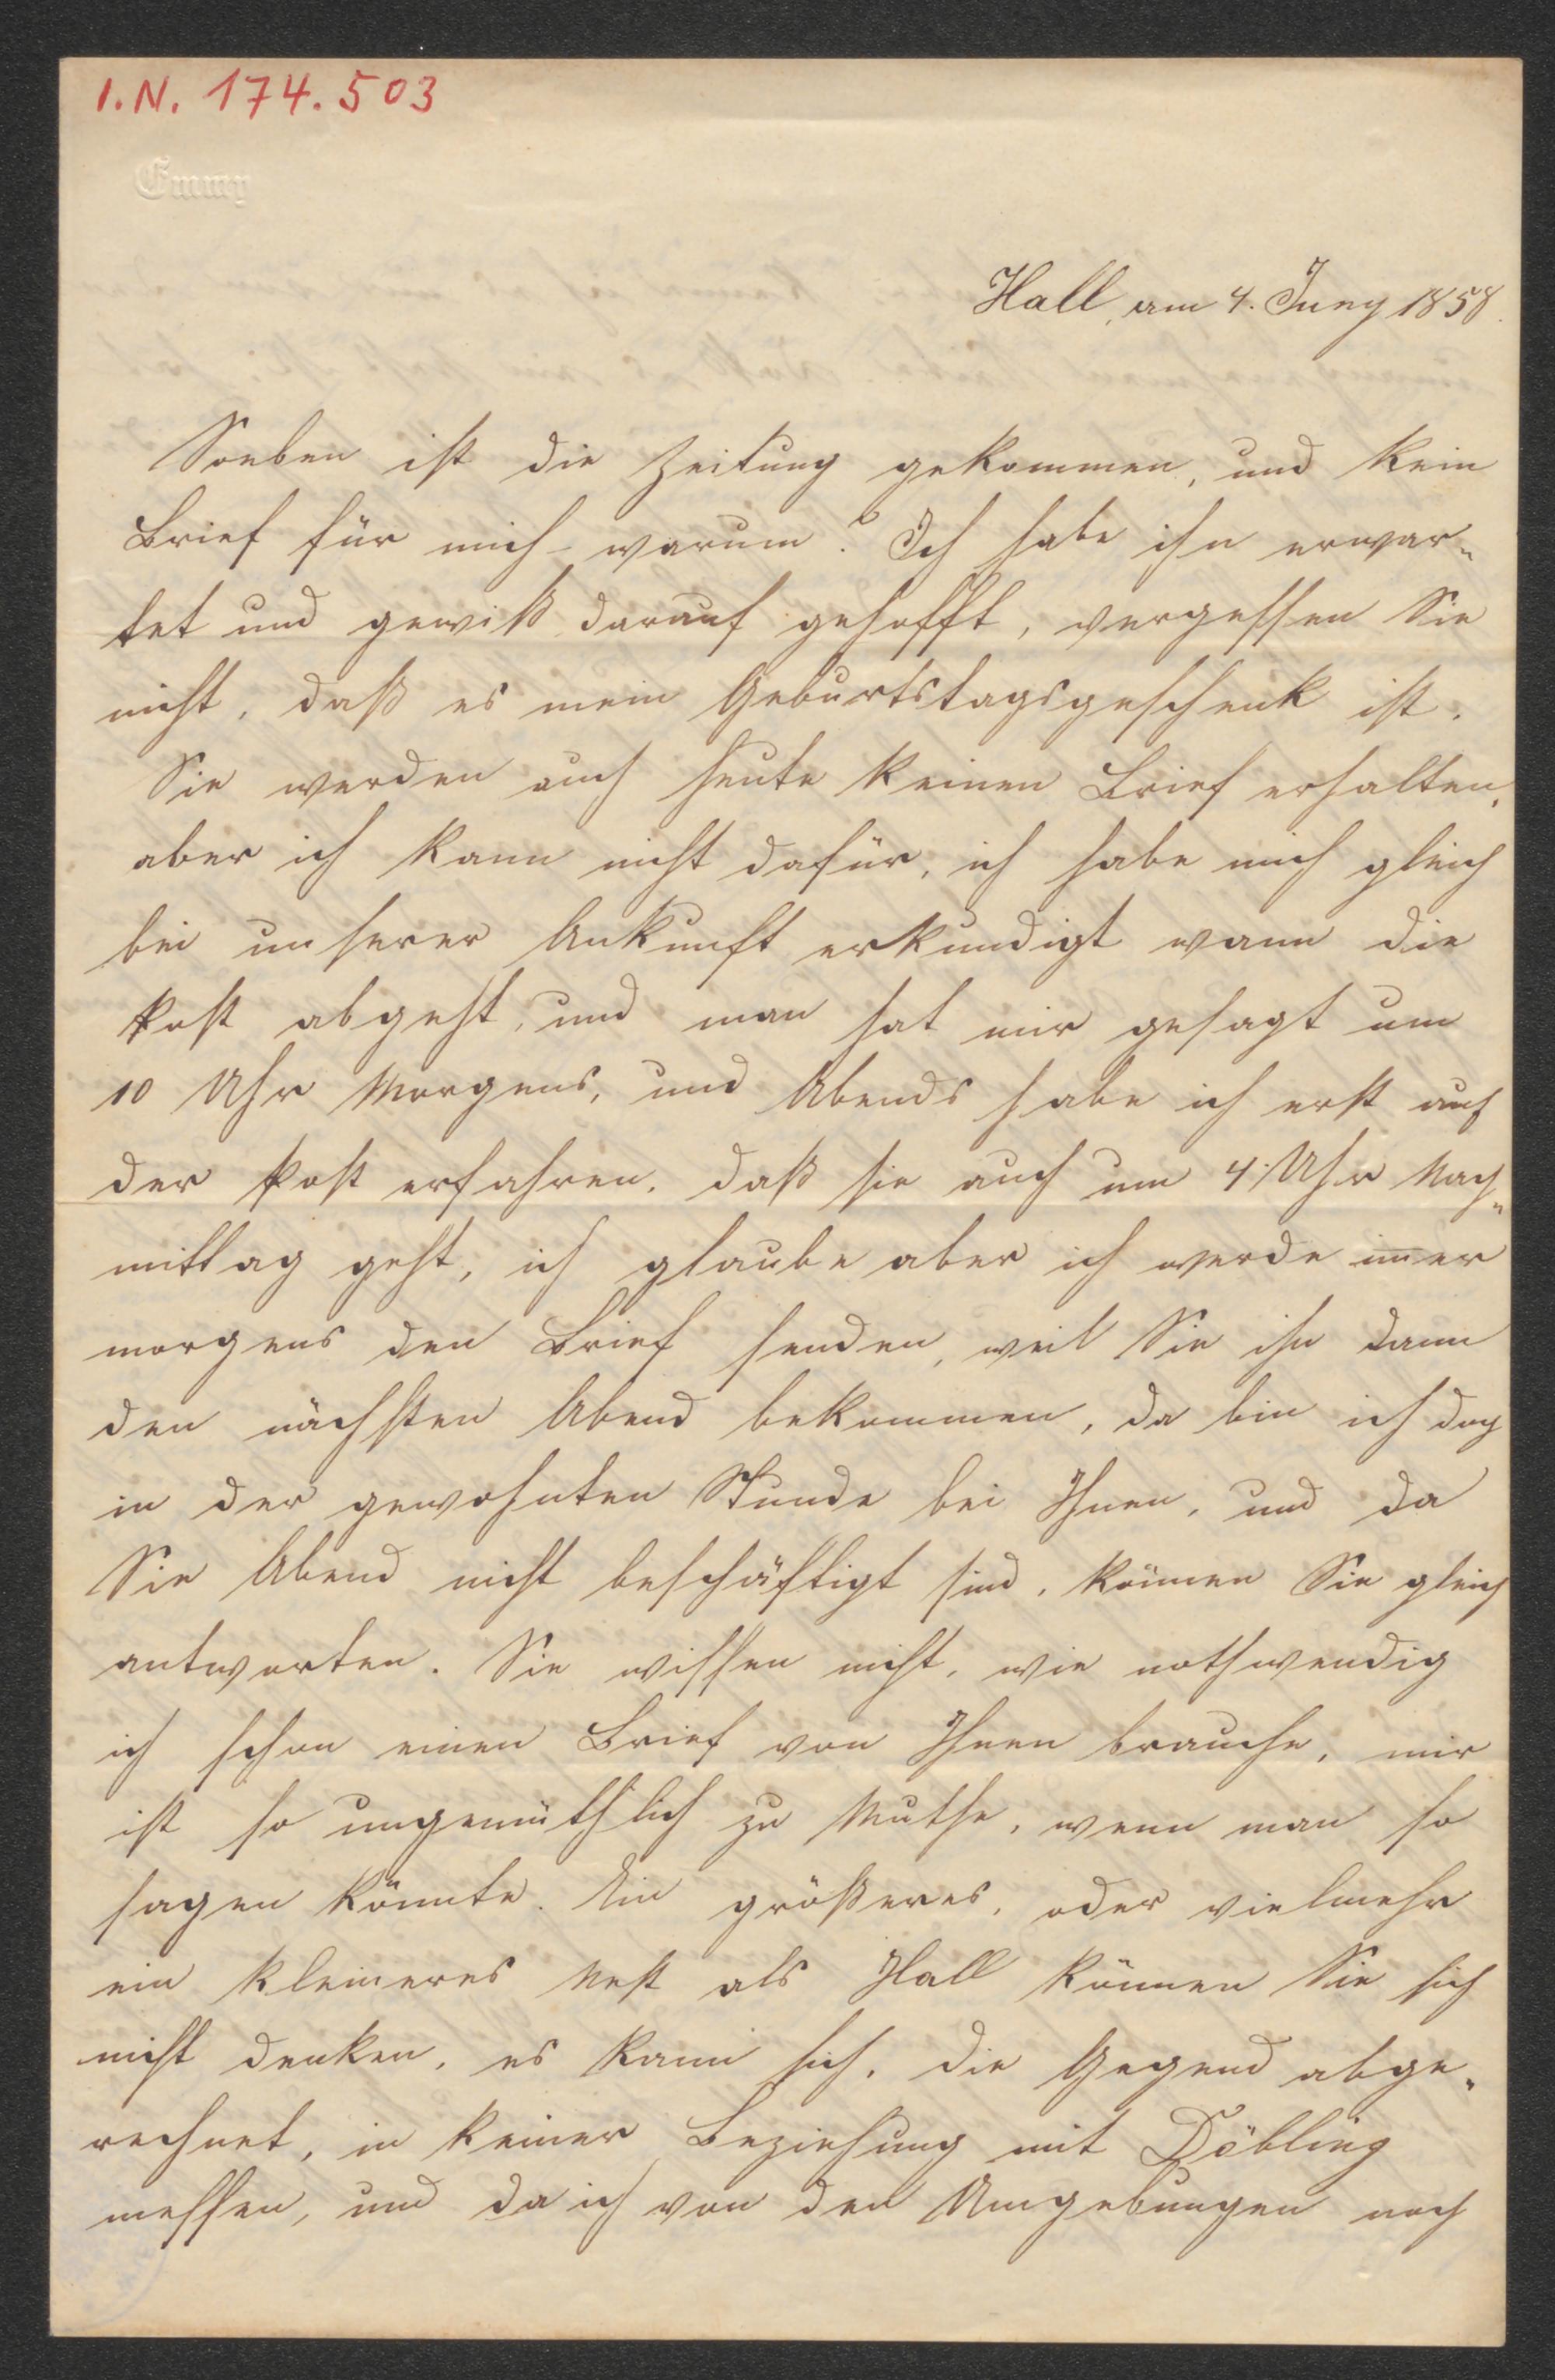 I.N. 174.503
Emmy
Hall, am 4. Juny 1858.
Soeben ist die Zeitung gekommen, und kein
Brief für mich – warum? Ich habe ihn erwar=
tet und gewiß darauf gehofft, vergessen Sie
nicht, daß es mein Geburtstagsgeschenk ist.
Sie werden auch heute keinen Brief erhalten,
aber ich kann nicht dafür, ich habe mich gleich
bei unserer Ankunft erkundigt wann die
Post abgeht, und man hat mir gesagt um
10 Uhr Morgens, und Abends habe ich erst auf
der Post erfahren, daß sie auch um 4 Uhr Nach=
mittag geht, ich glaube aber ich werde im̅er
morgens den Brief senden, weil Sie ihn dann
den nächsten Abend bekommen, da bin ich doch
in der gewohnten Stunde bei Ihnen, und da
Sie Abend nicht beschäftigt sind, können Sie gleich
antworten. Sie wissen nicht, wie nothwendig
ich schon einen Brief von Ihnen brauche, mir
ist so ungemüthlich zu Muthe, wenn man so
sagen könnte. Ein größeres, oder vielmehr
ein kleineres Nest als Hall können Sie sich
nicht denken, es kann sich, die Gegend abge=
rechnet, in keiner Beziehung mit Döbling
messen, und da ich von den Umgebungen noch